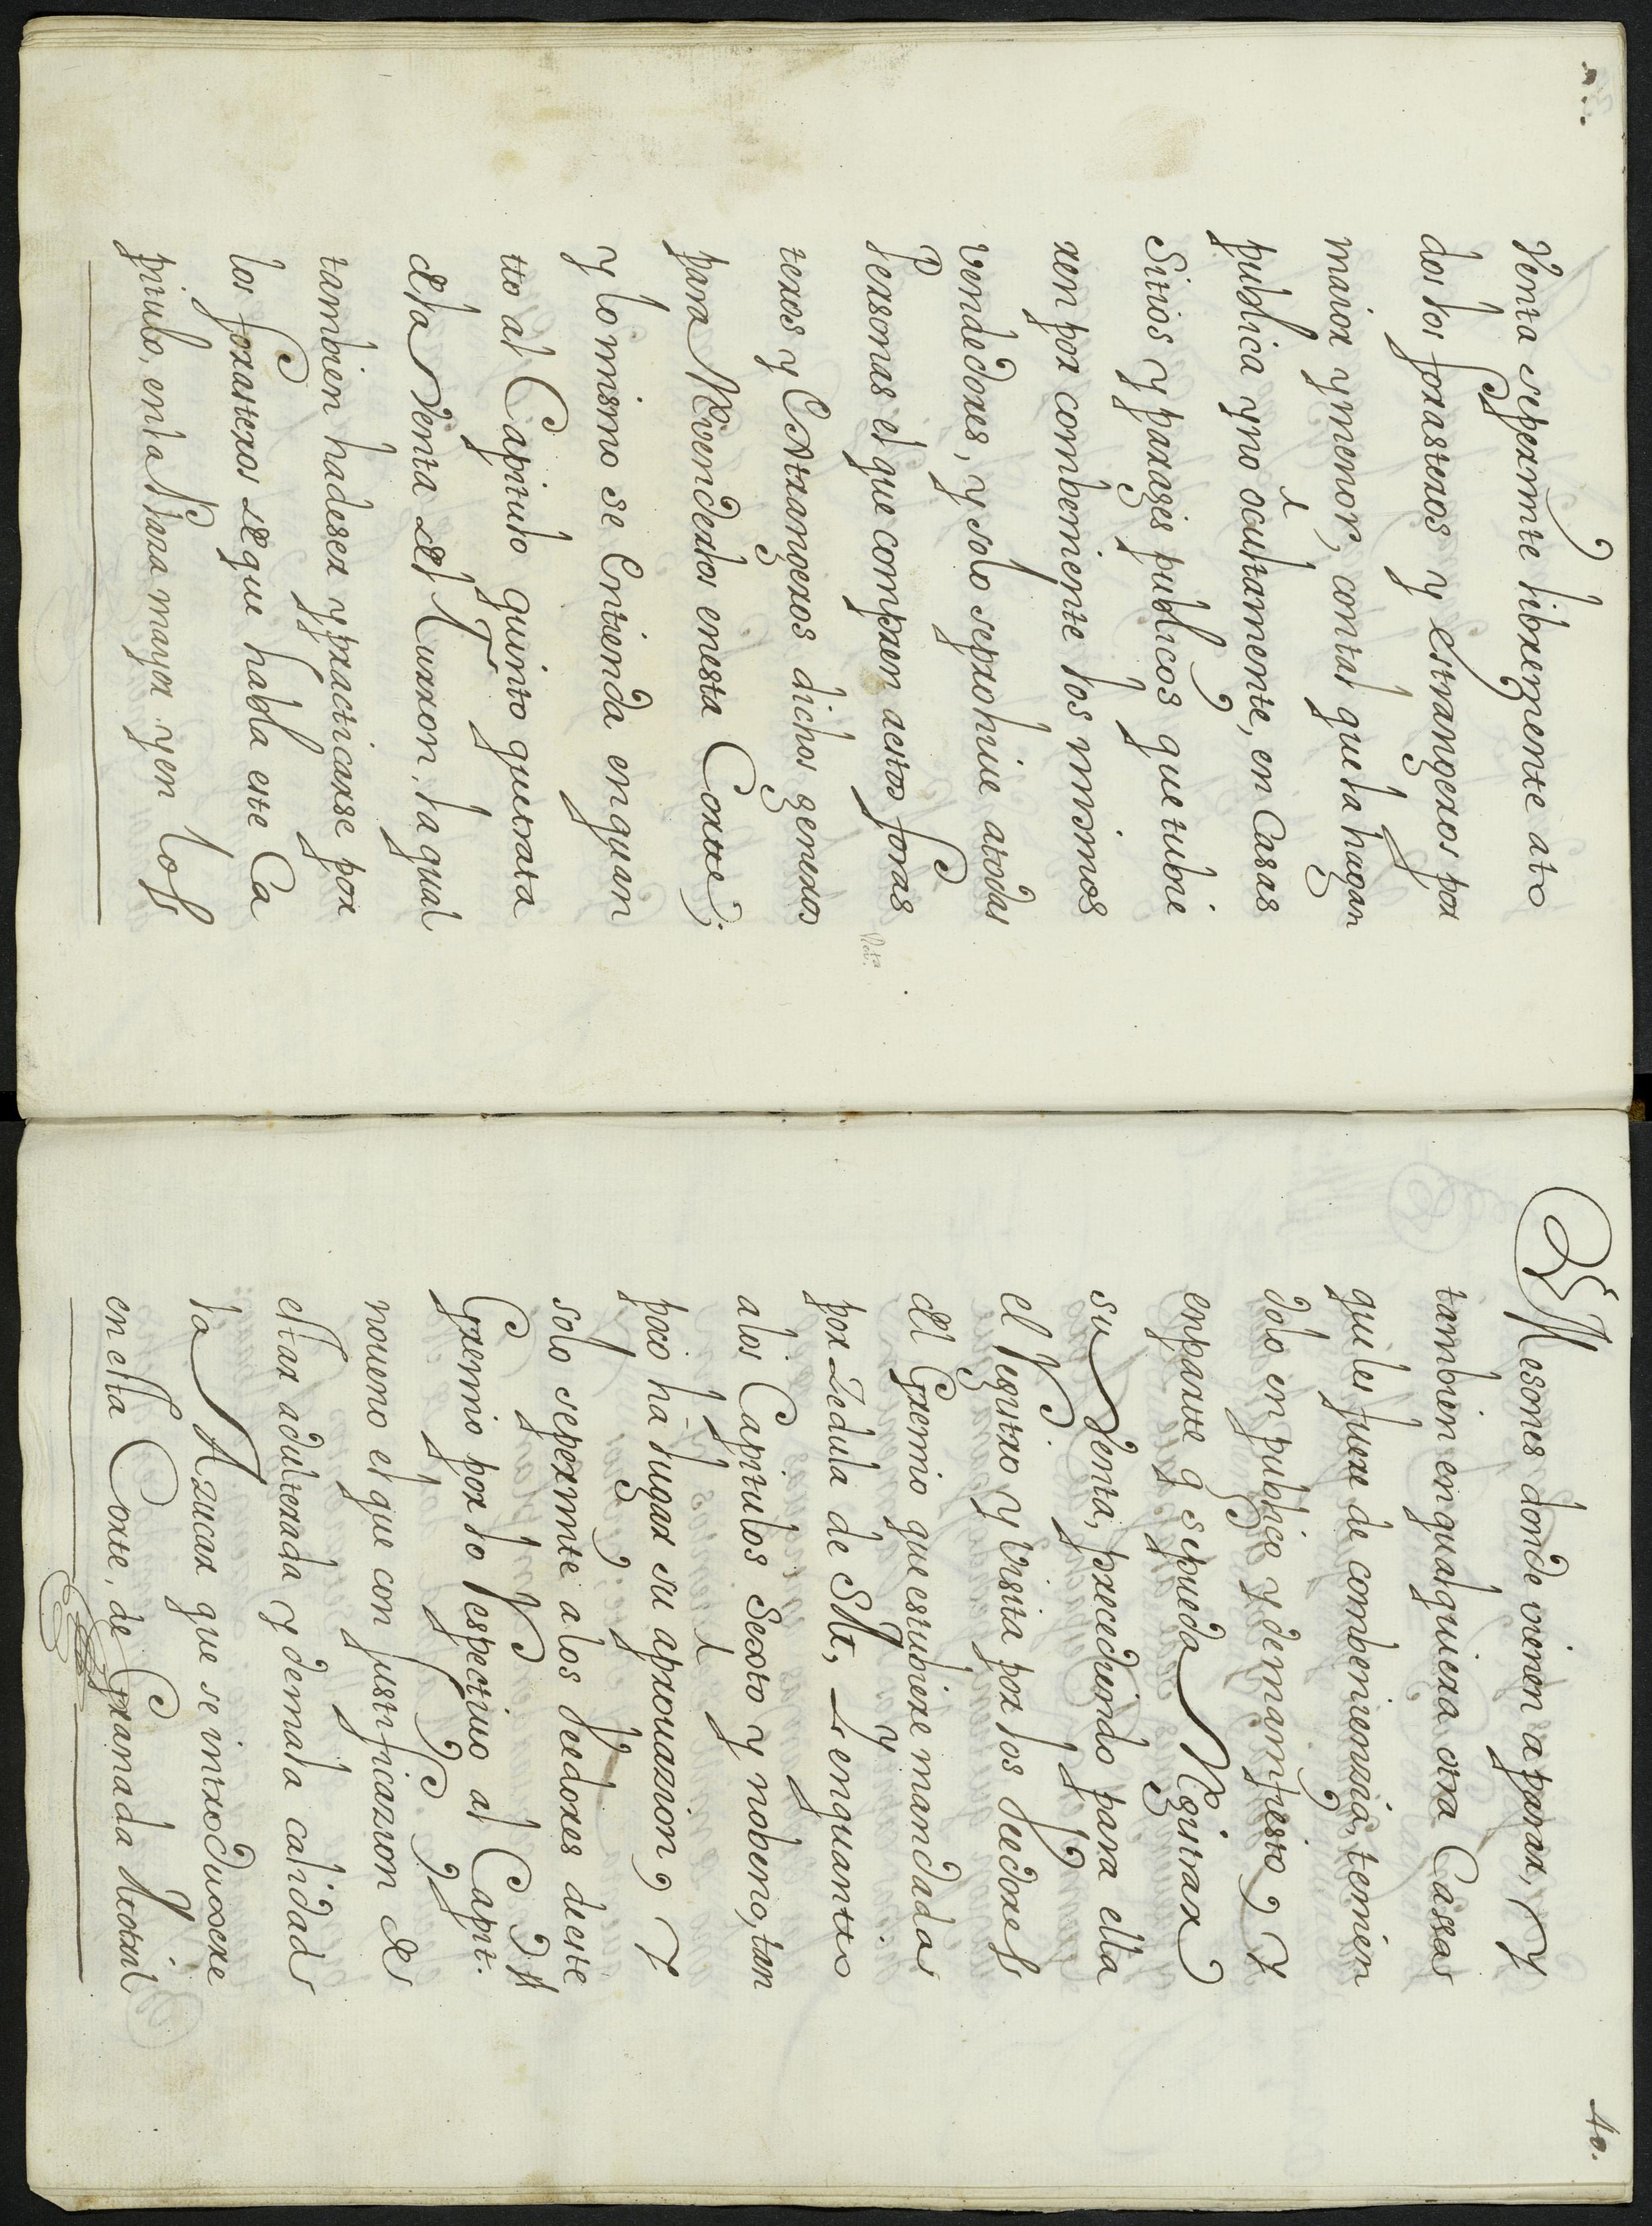 Venta sepermite librem.te ato
dos los forasteros y estrangeros por
maior y menor, con tal que la hagan
publica y no ocultamente, en Casas
Sitios y parages publicos que tubie
ren por combeniente los mismos
vendedores, y solo seprohive atodas
Personas el que compren aestos foras
teros y Extrangeros dichos generos
para Revenderlos enesta Corte;
y lo mismo se Entienda en quan
tto al Capitulo quinto que trata
dela Venta del Turron, la qual
tambien hadeser y practicarse por
los forasteros de que habla este Ca
pitulo, en la Plaza mayor y en los
Mesones donde vienen a parar, Y
tambien en qualquiera otra Cassas
quiles fuere de combenienzia, tenien
dolo en publico y de manifiesto, Y
enparte q sepueda Registrar
su Venta, precediendo para ella
el Registro y Visita por los Veedores
del Gremio que estubiere mandadas
por Zedula de SM, Y enquantto
alos Capitulos Sexto y nobeno, tan
poco ha lugar su aprovazion, Y
solo sepermite alos Veedores deeste
Gremio por lo Respectivo al Capit.
noueno el que con justificazion de
estar adulterada y demala calidad
la Azucar que se introduxere
en esta Corte, de Granada Motril
40.
Not.a